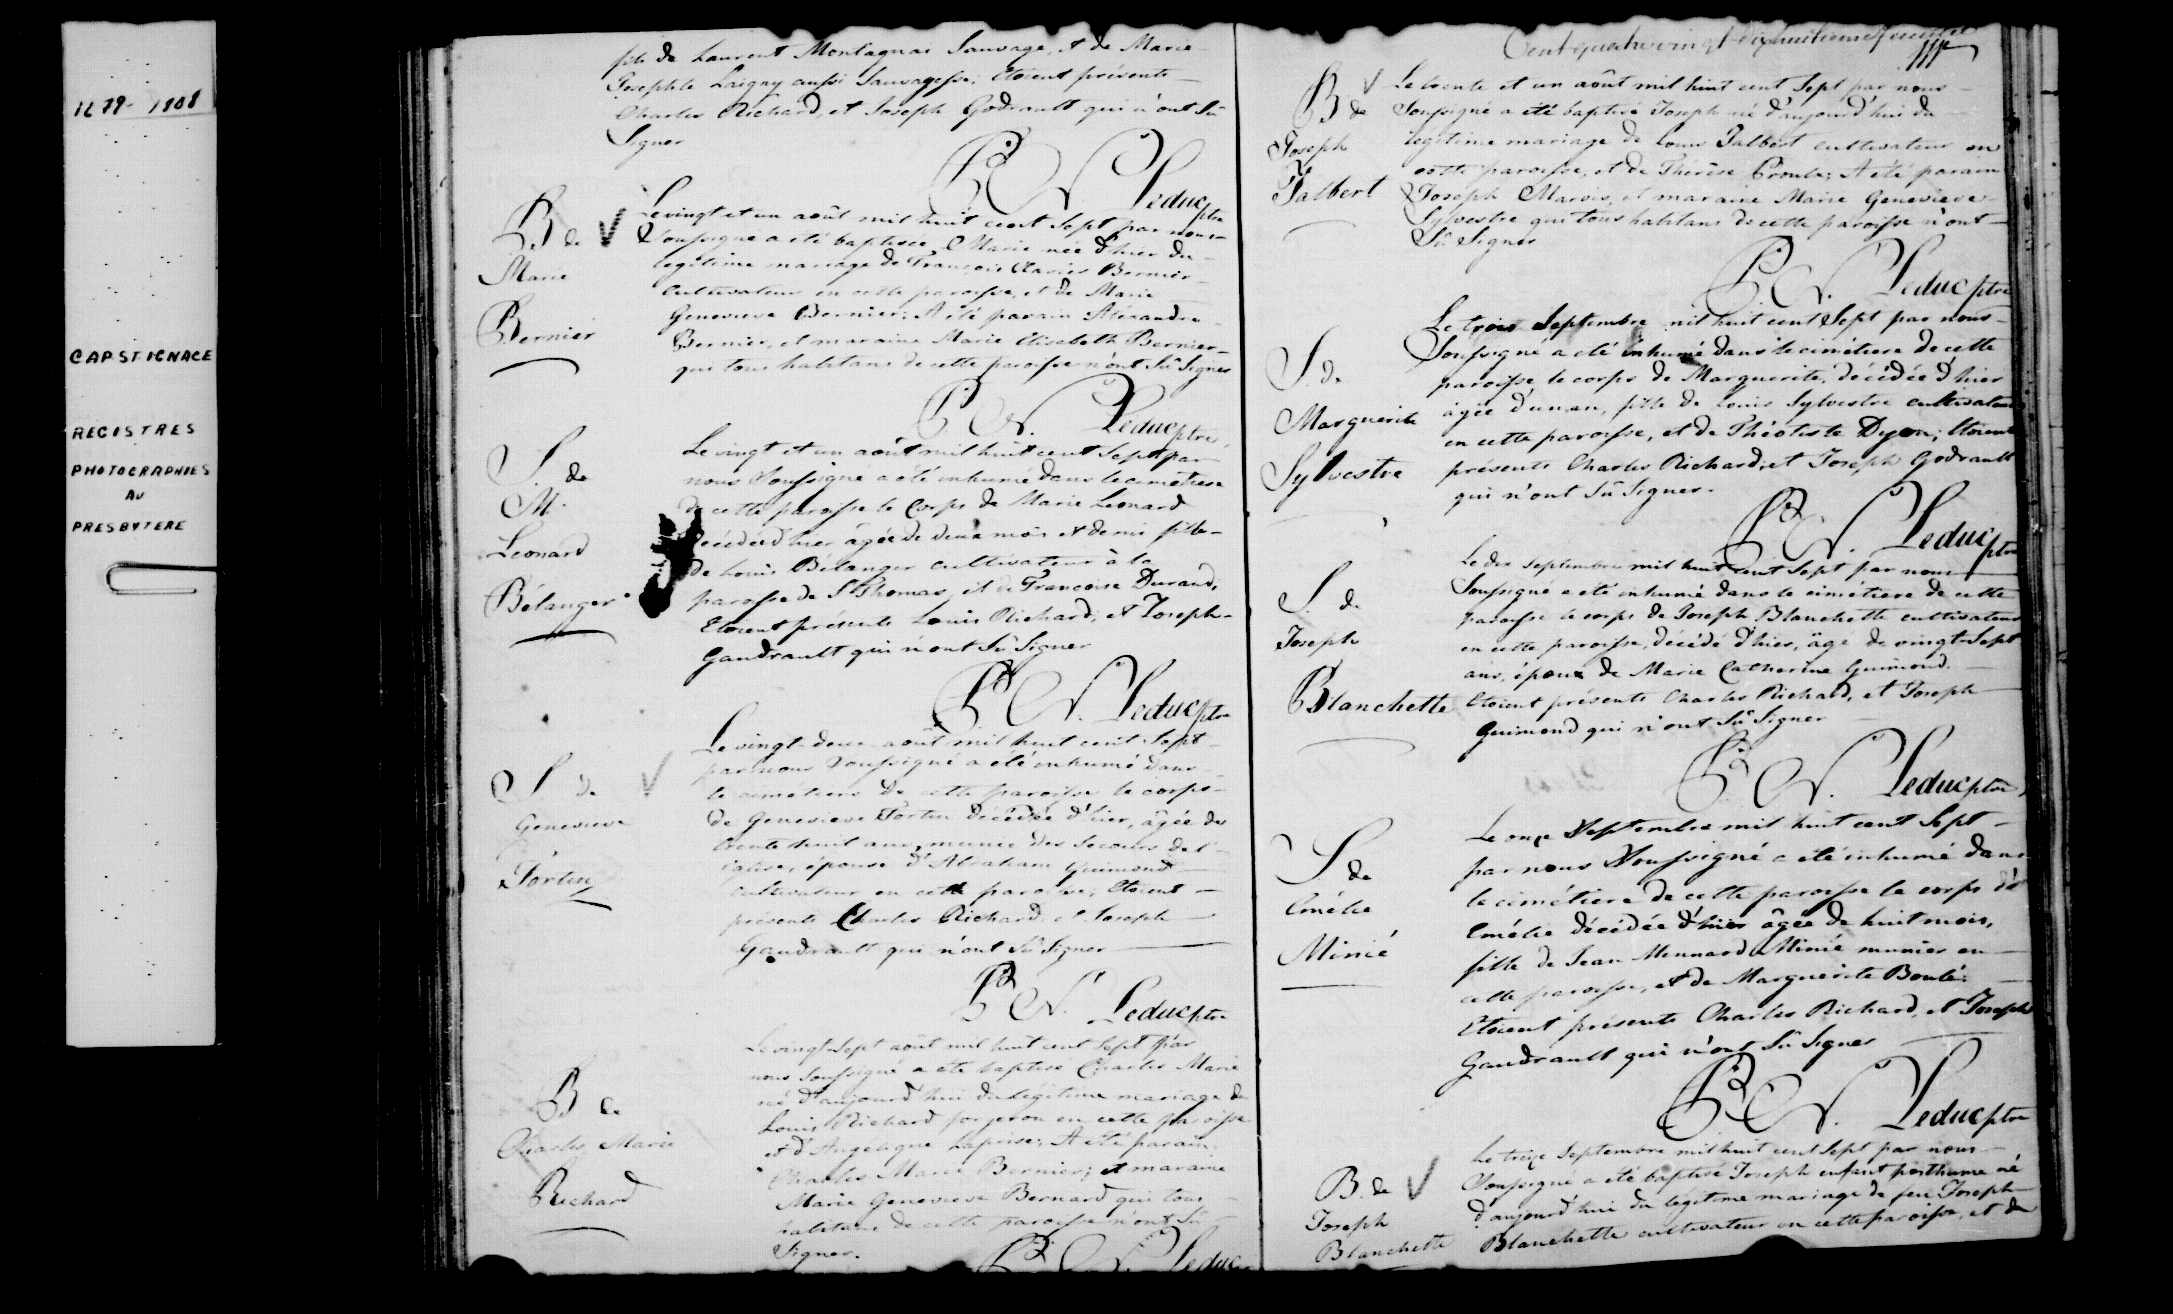 1679-1808
CAP ST IGNACE
REGISTRES
PHOTOGRAPHIES
AU
PRESBYTERE
fils de Laurent Montagnais Sauvage, et de Marie
Josephte Laigny aussi Sauvagesse; Etoient présents
Charles Richard, et Joseph Godrault qui n'ont Sû
Signer
Leduc ptre
B. de
Marie
Bernier
Le vingt et un août mil huit cent Sept par nous
Soussigné a été baptisée Marie née d'hier du
legitime mariage de François Xavier Bernier
cultivateur en cette paroisse, et de Marie
Genevieve Bernier; A été parain Alexandre
Bernier, et maraine Marie Elisabeth Bernier
qui tous habitans de cette paroisse n'ont Sû Signer
Leduc ptre
S. de
M.
Leonard
Bélanger
Le vingt et un août mil huit cent Sept par
nous Soussigné a été inhumé dans le cimetiere
de cette paroisse le Corps de Marie Leonard
decédée d'hier âgée de deux mois et demi fille
de Louis Bélanger cultivateur à la
paroisse de St Thomas, et de Françoise Durand,
Etoient présents Louis Richard, et Joseph
Gaudrault qui n'ont Sû Signer
Leduc ptre
S. de
Genevieve
Fortin
Le vingt-deux août mil huit cent Sept
par nous Soussigné a été inhumé dans
le cimetiere de cette paroisse le corps
de Genevieve Fortin décédée d'hier, âgée de
trente huit ans, munie des Secours de l'
église, épouse d'Abraham Guimond
cultivateur en cette paroisse; Etoient
présents Charles Richard, et Joseph
Gaudrault qui n'ont Sû Signer
Leduc ptre
B de
Charles Marie
Richard
Le vingt-Sept août mil huit cent Sept par
nous Soussigné a été baptisé Charles Marie
né d'aujourd'hui du légitime mariage de
Louis Richard forgeron en cette paroisse
et d'Angelique Laprise; A été parain
Charles Marie Bernier; et maraine
Marie Genevieve Bernard qui tous
habitans de cette paroisse n'ont Sû
Signer.
Leduc
Cent quatre vingt dix huitieme feuillet
B de
Joseph
Talbert
Le trente et un août mil huit cent Sept par nous
Soussigné a été baptisé Joseph né d'aujourd'hui du
legitime mariage de Louis Talbert cultivateur en
cette paroisse, et de Thérèse Proulx; A été parain
Joseph Marois, et maraine Marie Genevieve
Sylvestre qui tous habitans de cette paroisse n'ont
Sû Signer
Leduc ptre
S. de
Marguerite
Sylvestre
Le trois Septembre mil huit cent Sept par nous
Soussigné a été inhumé dans le cimétiere de cette
paroisse le corps de Marguerite, décédée d'hier
âgée d'un an, fille de Louis Sylvestre cultivateur
en cette paroisse, et de Théotiste Dyon; Etoient
présents Charles Richard, et Joseph Godrault
qui n'ont Sû Signer.
Leduc ptre
S. de
Joseph
Blanchette
Le dix Septembre mil huit cent Sept par nous
Soussigné a été inhumé dans le cimétiere de cette
paroisse le corps de Joseph Blanchette cultivateur
en cette paroisse, décédé d'hier, âgé de vingt-Sept
ans, époux de Marie Catherine Guimond.
Etoient présents Charles Richard, et Joseph
Guimond qui n'ont Sû Signer
Leduc ptre
S. de
Emélie
Minié
Le onze Septembre mil huit cent Sept
par nous Soussigné a été inhumé dans
le cimétiere de cette paroisse le corps d'
Emélie décédée d'hier âgée de huit mois,
fille de Jean Mennard Minié munier en
cette paroisse, et de Marguerite Boulé:
Etoient présents Charles Richard, et Joseph
Gaudrault qui n'ont Sû Signer
Leduc ptre
B. de
Joseph
Blanchette
Le treize Septembre mil huit cent Sept par nous
Soussigné a été baptisé Joseph enfant posthume né
d'aujourd'hui du légitime mariage de feu Joseph
Blanchette cultivateur en cette paroisse, et de